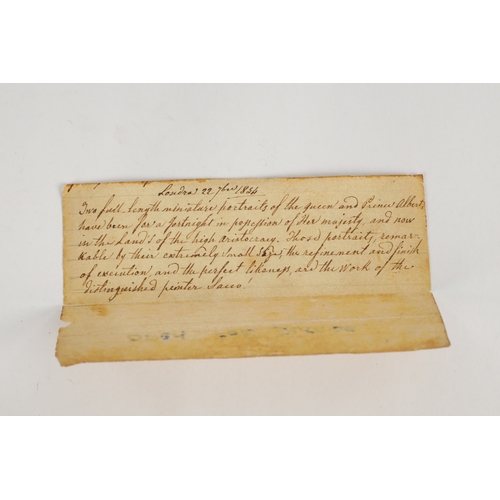 Londra 22 7bre 1854
Two full length miniature portraits of the queen and Pce Albert
have been for a fortnight in possession of Her majesty and now
in the hand's of the high aristocracy. Those portraits, remar-
kable by their extremely small size, the refinement and finish
of execution, and the perfect likeness, are the work of the
distinguished peinter Sacco.